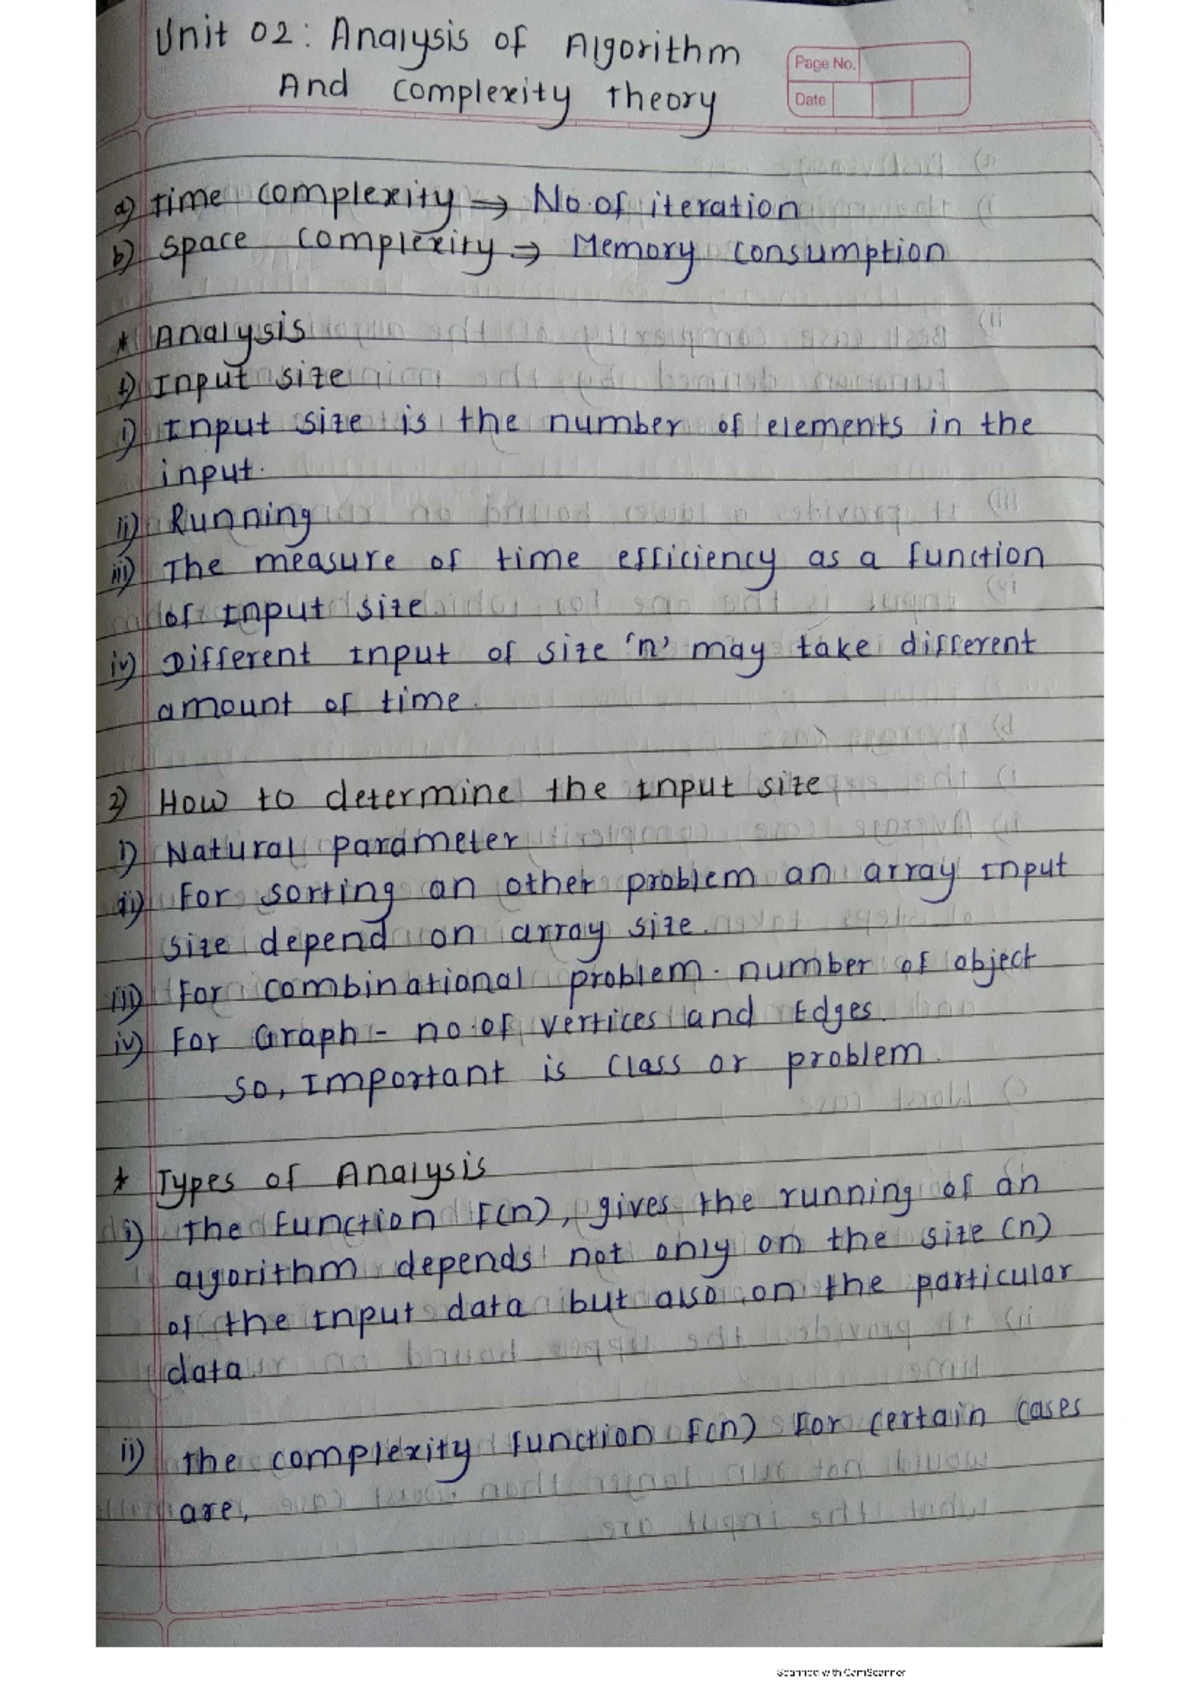 Unit 02: Analysis of Algorithm
And Complexity Theory
Page No.
Date
a) Time complexity → No. of iteration
b) Space complexity → Memory consumption
* Analysis
1) Input size
i) Input size is the number of elements in the
input.
ii) Running
iii) The measure of time efficiency as a function
of Input size.
iv) Different Input of size 'n' may take different
amount of time.
2) How to determine the Input size
i) Natural parameter
ii) For sorting an other problem an array Input
size depend on array size.
iii) For combinational problem. number of object
iv) For Graph :- no of vertices and Edges.
So, Important is Class or problem.
* Types of Analysis
i) The Function F(n), gives the running of an
algorithm depends not only on the size (n)
of the Input data but also on the particular
data
ii) The complexity function F(n) For certain Cases
are,
Scanned with CamScanner